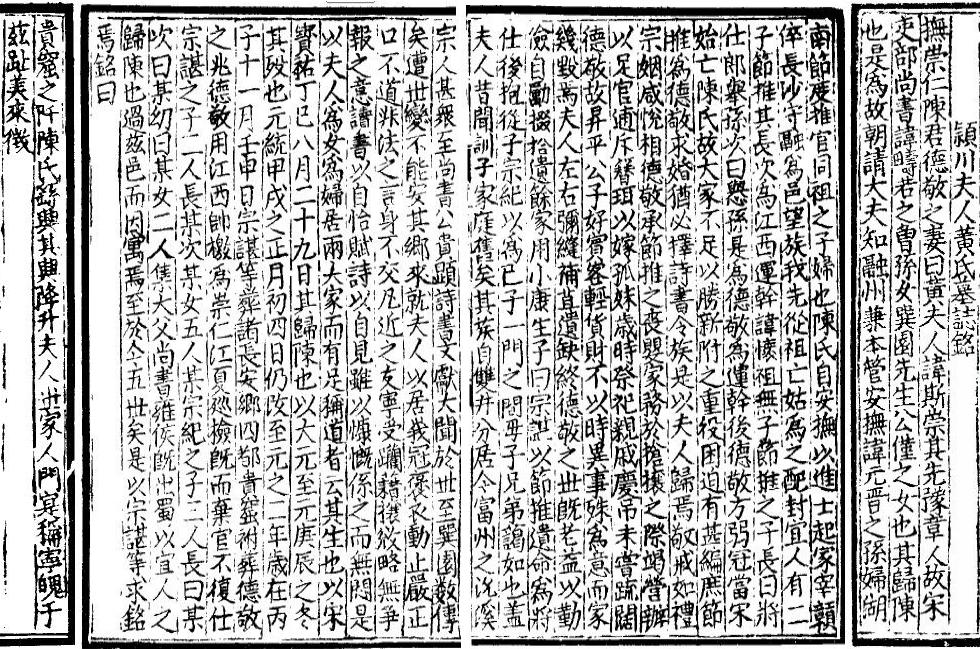 潁川夫人黃氏墓誌銘
撫崇仁陳君德敬之妻曰黃夫人諱斯崇其先豫章人故宋
吏部尚書諱疇若之曾孫女㢲園先生公僅之女也其歸陳
也是為故朝請大夫知融州兼本管安撫諱元晋之孫婦朝
南節度推官同祖之子婦也陳氏自安撫以進士起家宰贛
倅長沙守融為邑望族我先從祖亡姑為之配封宜人有二
子節推其長次為江西運幹諱懷祖無子節推之子長曰將
仕郎舉孫次曰㦤孫是為德敬為運幹後德敬方弱冠當宋
始亡陳氏故大家不足以勝新附之重役困迫有甚編庶節
推為德敬求婚猶必擇詩書令族是以夫人歸焉敬戒如禮
宗姻咸悅相德敬承節推之喪毉家務於搶攘之際竭營辦
以足官逋斥簪珥以嫁孤妹歲時祭祀親戚慶吊未嘗疏闊
德敬故昇平公子好賓客輕貨財不以時異事殊為意而家
幾斁焉夫人左右彌縫補苴遺缺終德敬之世旣老益以勤
儉自勵掇拾遺餘家用小康生子曰宗諶以節推遺命為將
仕後抱從子宗紀以為己子一門之間母子兄弟藹如也蓋
夫人昔聞訓子家庭舊矣其族自雙井分居今富州之沇溪
宗人甚衆至尚書公貴顯詩書文獻大聞於世至㢲園數傳
矣遭世變不能安其鄉來就夫人以居我冠褒衣動止嚴正
口不道非法之言身不交凡近之友寧受躪藉攘敚略無爭
報之意讀書以自怡賦詩以自見雖以慷慨係之而無悶是
以夫人為女為婦居兩大家而有足稱道者云其生也以宋
寶祐丁巳八月二十九日其歸陳也以大元至元庚辰之冬
其歿也元統甲戌之正月初四日仍改至元之二年歲在丙
子十一月壬申日宗諶等葬諸長安鄉四都貴窟祔葬德敬
之兆德敬用江西帥檄為崇仁江夏廵撿旣而棄官不復仕
宗諶之子二人長某次某女五人某宗紀之子二人長曰某
次曰某幼曰某女二人雋大父尚書雍侯旣出蜀以宜人之
歸陳也過兹邑而因寓焉至於今五世矣是以宗諶等求銘
焉銘曰
貴窟之阡陳氏